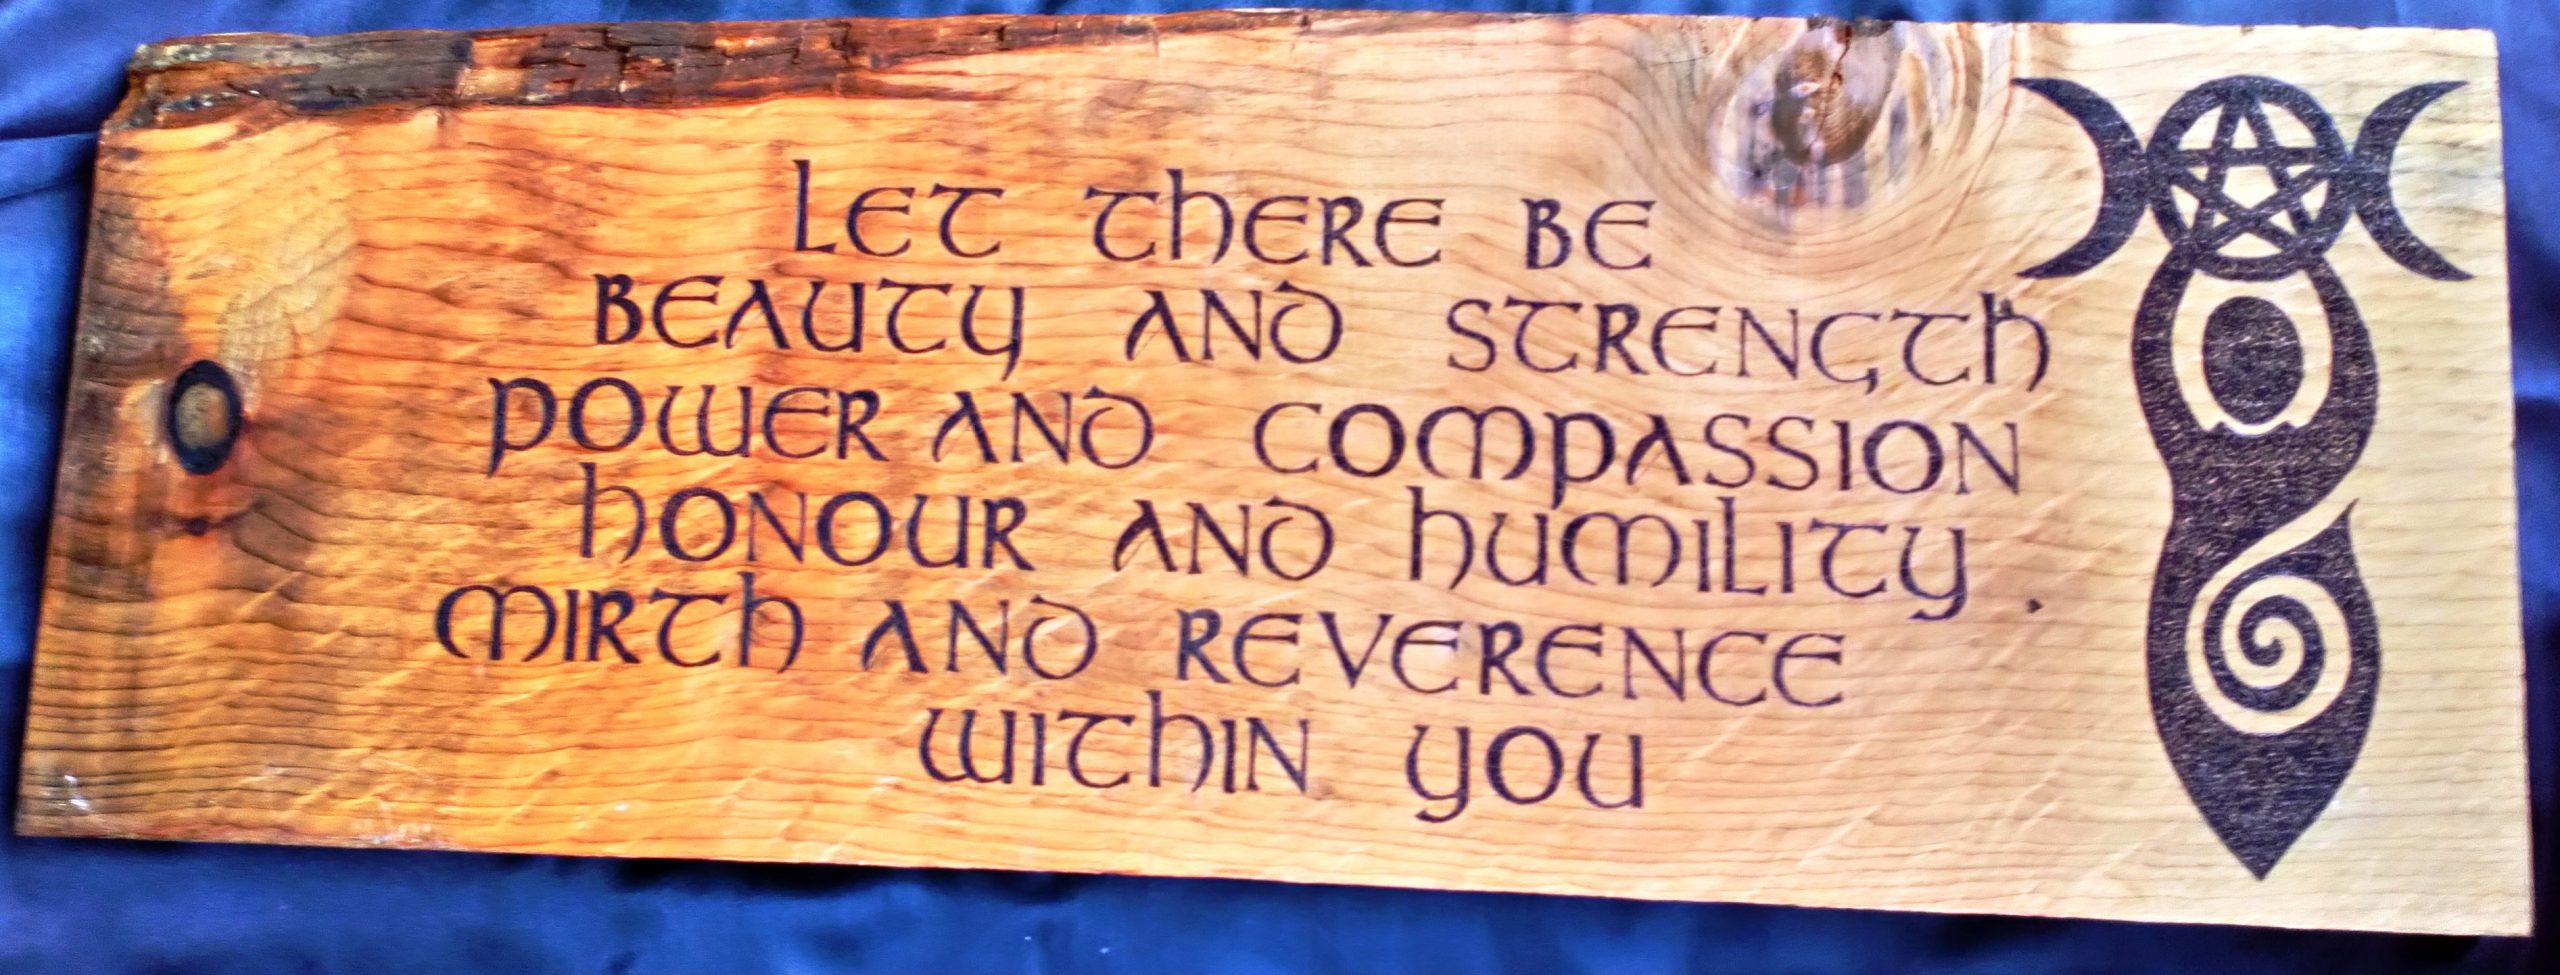 LET THERE BE
BEAUTY AND STRENGTH
POWER AND COMPASSION
HONOUR AND HUMILITY.
MIRTH AND REVERENCE
WITHIN YOU